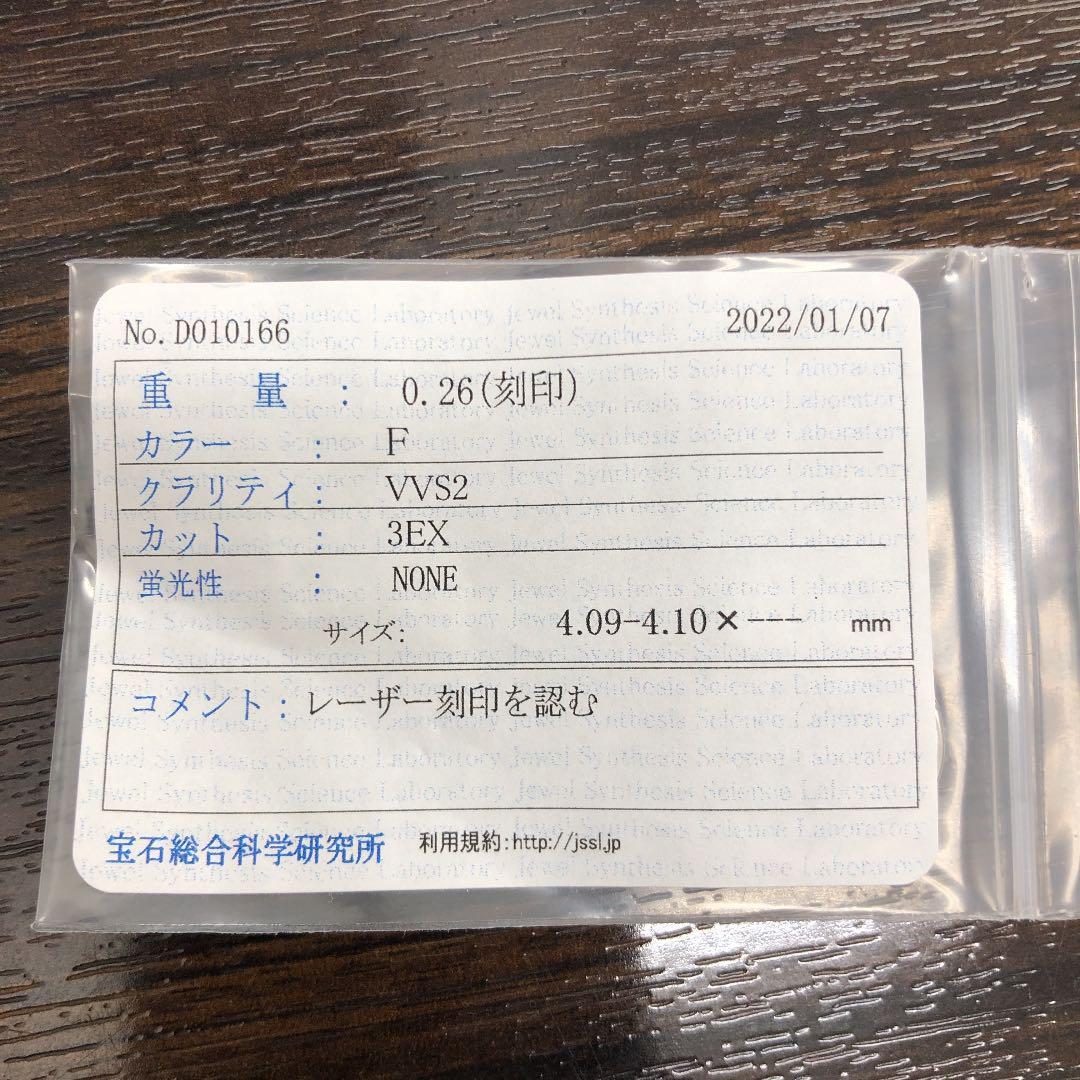 No.D010166 2022/01/07
重 量 : 0.26(刻印)
カラー : F
クラリティ : VVS2
カット : 3EX
蛍光性 : NONE
サイズ: 4.09-4.10×--- mm
コメント : レーザー刻印を認む
宝石総合科学研究所 利用規約:http://jssl.jp
Jewel Synthesis Science Laboratory